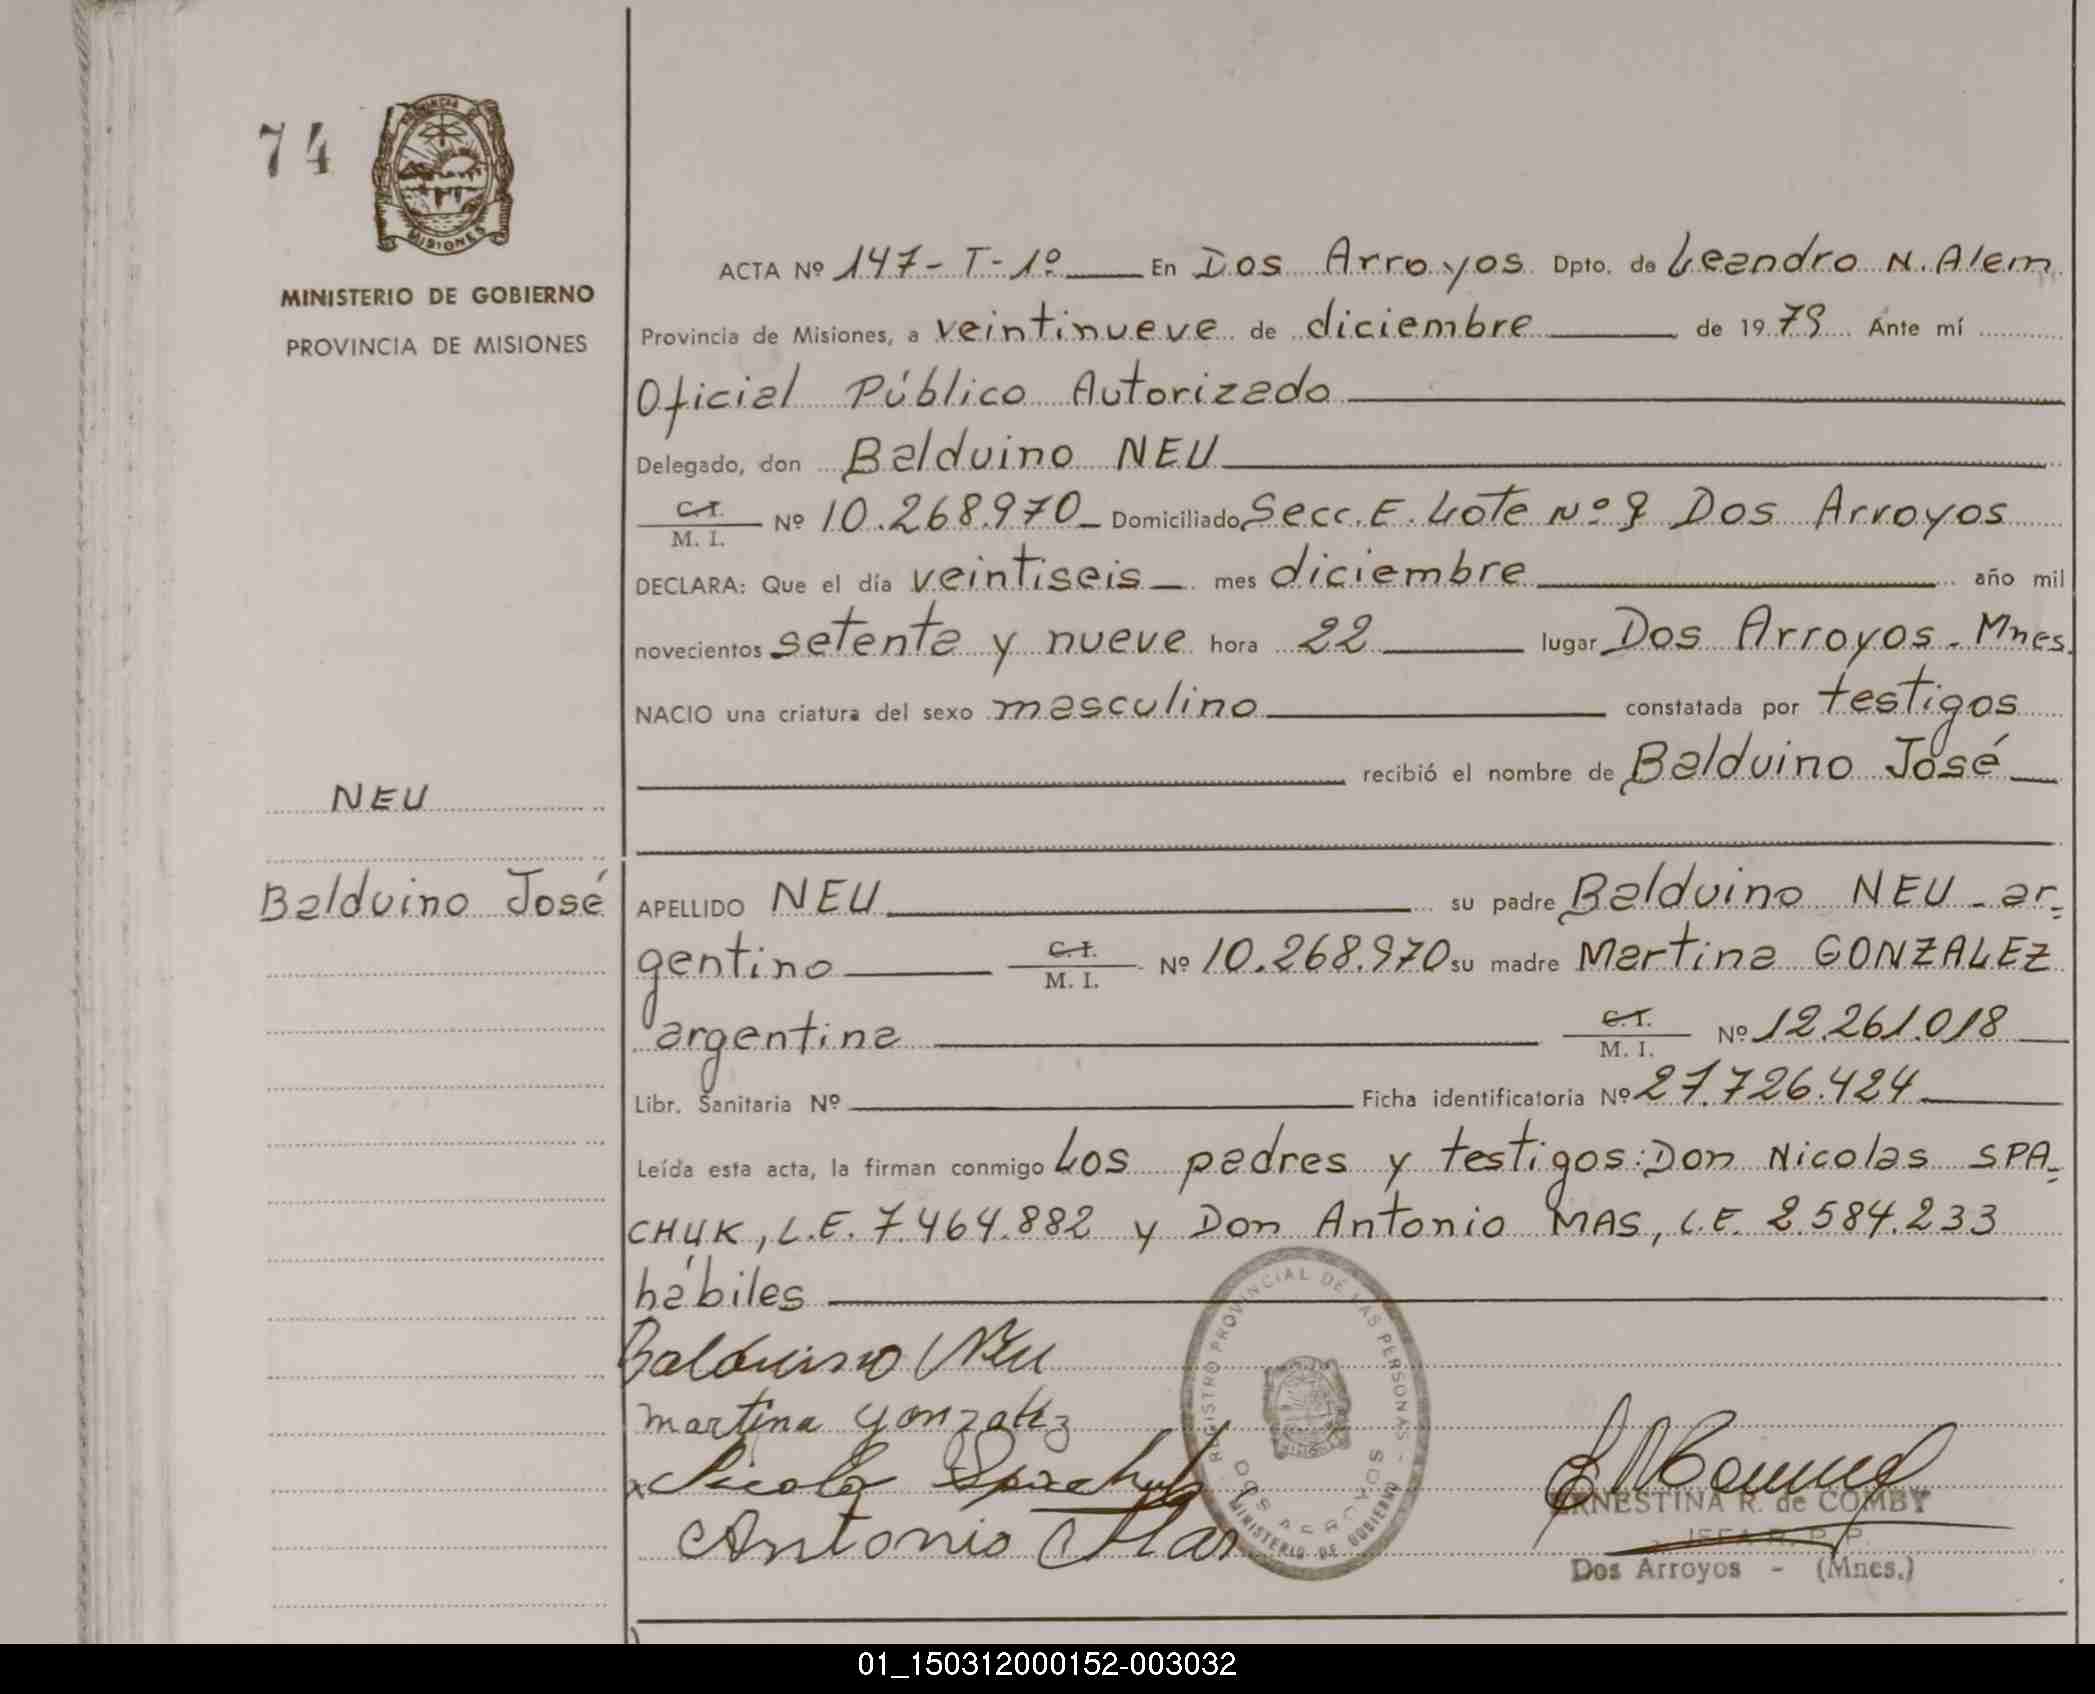 74
MISIONES
MINISTERIO DE GOBIERNO
PROVINCIA DE MISIONES
ACTA Nº 147-T-1º En Dos Arroyos Dpto. de Leandro N. Alem
Provincia de Misiones, a veintinueve de diciembre de 1979 Ante mí
Oficial Público Autorizado
Delegado, don Balduino NEU
C.I. M. I. Nº 10.268.970 Domiciliado Secc. E. Lote Nº 9 Dos Arroyos
DECLARA: Que el día veintiseis mes diciembre año mil
novecientos setenta y nueve hora 22 lugar Dos Arroyos - Mnes.
NACIO una criatura del sexo masculino constatada por testigos
recibió el nombre de Balduino José
NEU
Balduino José
APELLIDO NEU su padre Balduino NEU - ar-
gentino C.I. M. I. Nº 10.268.970 su madre Martina GONZALEZ
argentina C.I. M. I. Nº 12.261.018
Libr. Sanitaria Nº Ficha identificatoria Nº 27.726.424
Leída esta acta, la firman conmigo Los padres y testigos: Don Nicolas SPA-
CHUK, L.E. 7.464.882 y Don Antonio MAS, L.E. 2.584.233
hábiles
Balduino Neu
martina gonzalez
Nicolas Spachuk
Antonio Mas
REGISTRO PROVINCIAL DE LAS PERSONAS -
DOS ARROYOS
MINISTERIO DE GOBIERNO
ERNESTINA R. de COMBY
JEFA R. P. P.
Dos Arroyos - (Mnes.)
01_150312000152-003032